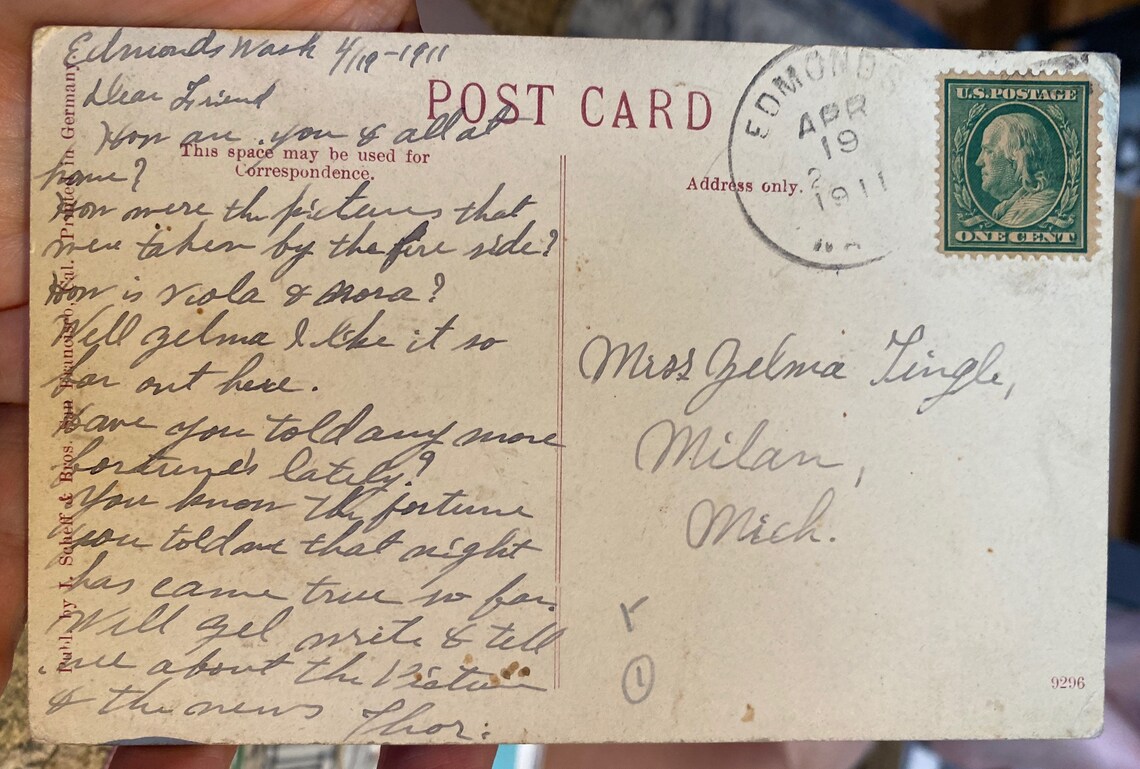 Edmonds Wash 4/19-1911
Dear Friend
How are you & all at
home?
How were the pictures that
were taken by the fire side?
How is Viola & Nora?
Well Zelma I like it so
far out here.
Have you told any more
fortune's lately?
You know the fortune
you told me that night
has came true so far.
Well Zel write & tell
me about the Picture
& the news Thor.
POST CARD
This space may be used for
Correspondence.
Address only.
EDMONDS
APR
19
2
1911
WA
U.S. POSTAGE
ONE CENT
Miss Zelma Tingle,
Milan,
Mich.
1
9296
Publ. by J. Scheff & Bros. San Francisco, Cal. Printed in Germany.